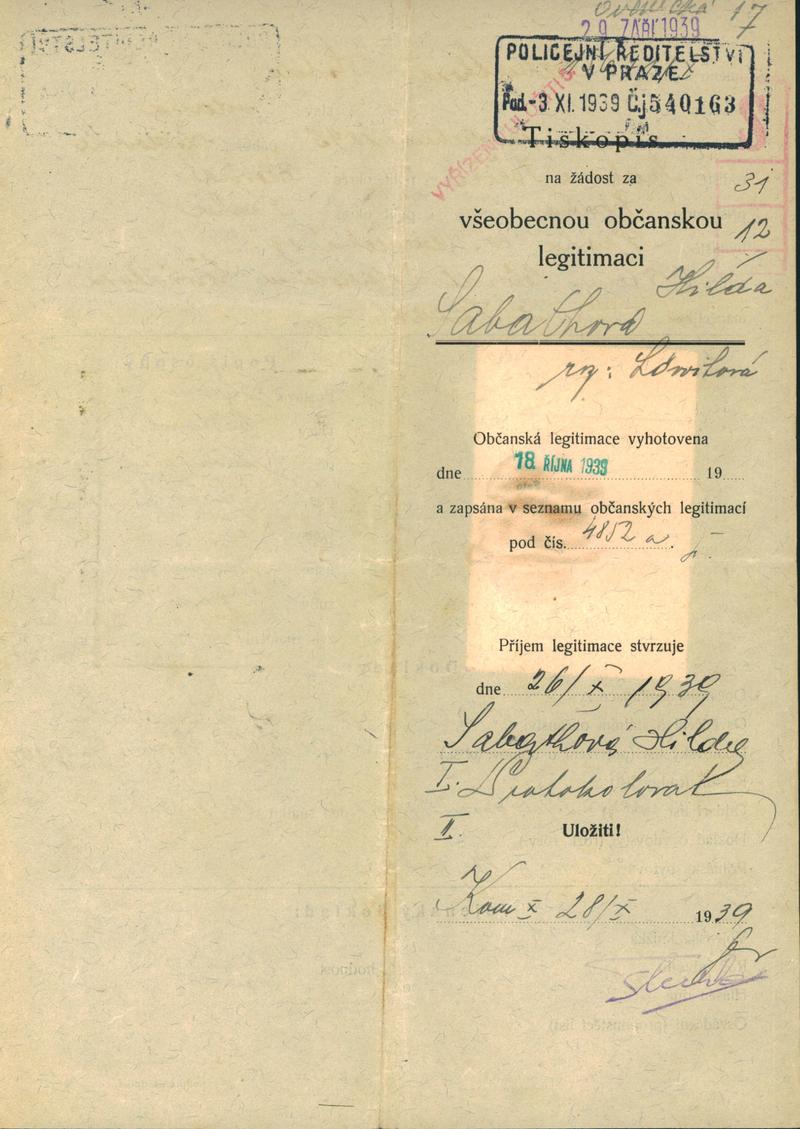 17
29 ZÁŘÍ 1939
POLICEJNÍ ŘEDITELSTVÍ
V PRAZE
Pod. -3. XI. 1939 Čj 540163
Tiskopis
na žádost za
31
všeobecnou občanskou
12
legitimaci
Hilda
Sabathová
roz: Löwitová
Občanská legitimace vyhotovena
dne 18 ŘÍJNA 1939 19
a zapsána v seznamu občanských legitimací
pod čís. 4852 a
Příjem legitimace stvrzuje
dne 26/X 1939
Sabathová Hilda
I. Protokolovat
II. Uložiti!
Kom X 28/X 1939